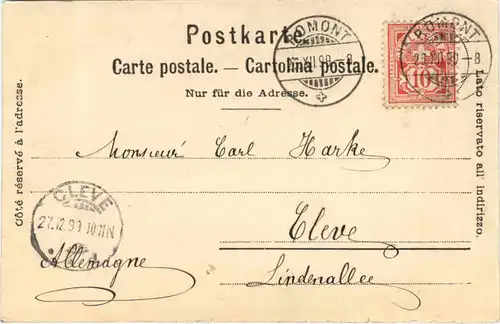 Postkarte.
Carte postale. — Cartolina postale.
Nur für die Adresse.
Côté réservé à l'adresse.
Lato riservato all' indirizzo.
ROMONT
XII.99
ROMONT
XII.99-8
10
Monsieur Carl Harke
Cleve
Lindenallee
Allemagne
CLEVE
27.12.99 10-11N